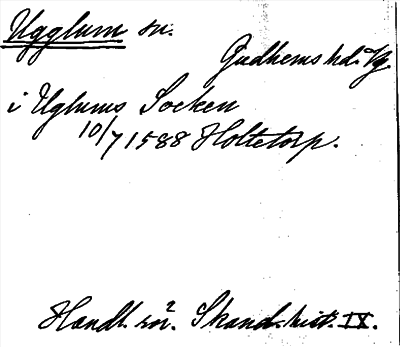 Ugglum sn.
Gudhems hd. Vg
i Uglums Socken
10/7 1588 Holtetorp.
Handl. rör. Skand. hist. IX.